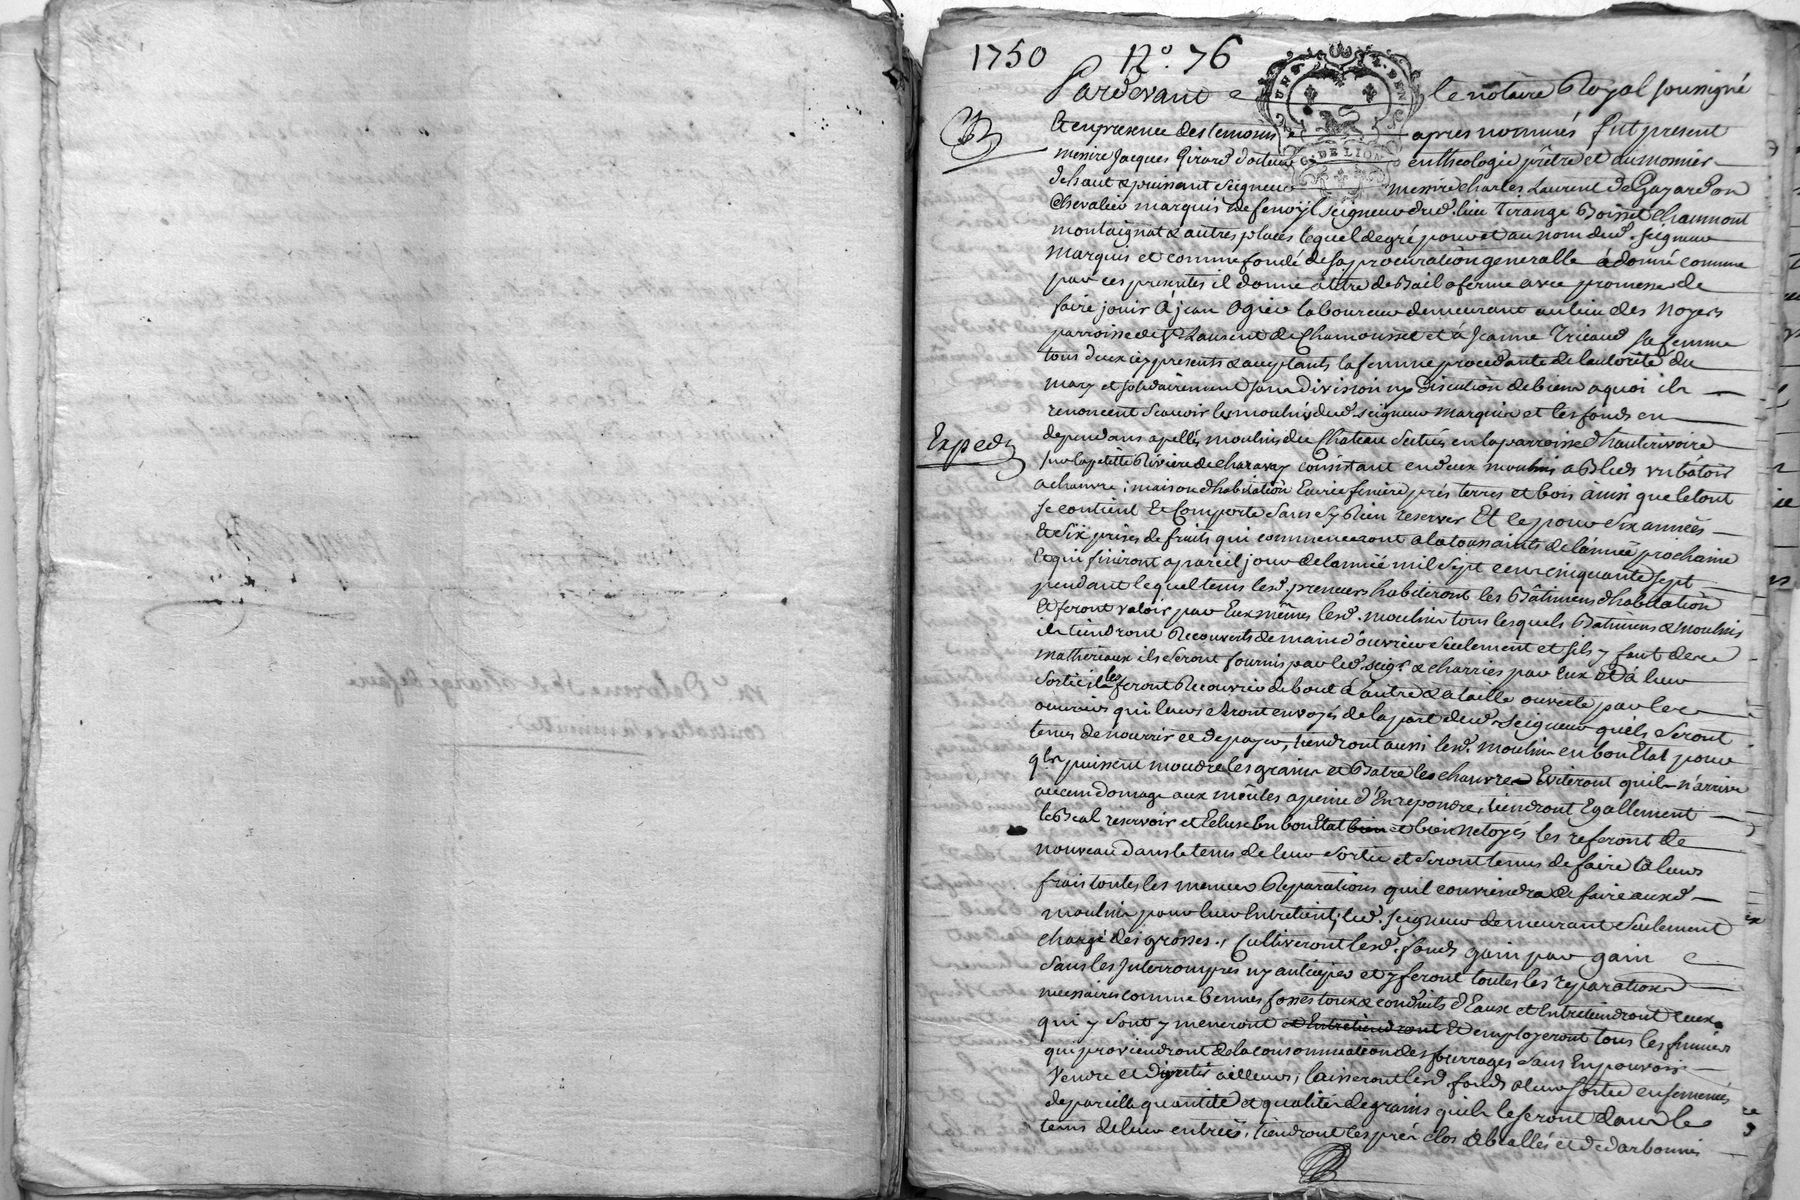 1750 N.o 76
Pardevant le notaire Royal soussigné
GNE. DE LION
Et en presence des temoins apres nommés fut present
messire Jacques Girard docteur en theologie prêtre et aumonier
de haut & puissant seigneur messire charles Laurent de Gayardon
Chevalier marquis de fenoÿl seigneur dud. lieu Tirange Boisset Chaumont
montaignat & autres places lequel de gré pour et au nom dud. seigneur
marquis et comme fondé de sa procuration generalle a donné comme
par ces presentes il donne a titre de Bail a ferme avec promesse de
faire jouir à jean Ogier laboureur demeurant au lieu des Noyers
parroisse de St. Laurent de Chamousset et à Jeanne Tricaud sa femme
tous deux icy presents & acceptants la femme procedante de l'autorité du
mary et solidairement sans division ny discution de biens a quoi ils
renoncent Scavoir les moulins dud. seigneur marquis et les fonds en
Exped.
dependans apellés moulins du Chateau Scitués en la parroisse d'hauterivoire
sur la petitte Riviere de charavay consistant en deux moulins a Bleds un bâtoir
a chanvre ; maison d'habitation Ecurie feniere prés terres et bois ainsi que le tout
se contient Et Comporte Sans s'y Rien reserver Et ce pour Six années
Et Six prises de fruits qui commenceront a la toussaints de l'année prochaine
Et qui finiront a pareil jour de l'année mil Sept cent cinquante Sept
pendant lequel tems lesd. preneurs habiteront les Bâtimens d'habitation
Et feront valoir par Eux mêmes lesd. moulins tous lesquels Batimens & moulins
ils tiendront Recouverts de main d'ouvrier Seulement et s'ils y faut des
matheriaux ils Seront fournis par led. seigr. & charriés par Eux Et à leur
Sortie ils les feront Recouvrir de bout à autre & a taille ouverte par les
ouvriers qui leurs seront envoyés de la part dud. Seigneur qu'ils Seront
tenus de nourrir et de payer, tiendront aussi lesd. moulins en bon Etat pour
qls. puissent moudre les grains et Batre les chanvres Eviteront quil n'arrive
aucun domage aux meules a peine d'En repondre, tiendront Egallement
le Beal reservoir et Ecluse En bon Etat bien et bien Netoyés les referont de
nouveau dans le tems de leur Sortie et Seront tenus de faire à leurs
frais toutes les menues Reparations quil conviendra de faire auxd.
moulins pour leur Entretient, led. Seigneur demeurant Seulement
chargé des grosses., Cultiveront lesd. fonds gain par gain
Sans les Interrompres ny anticiper et y feront toutes les reparations
necessaires comme bennes fosses toux & conduits d'Eaux et Entretiendront ceux
qui y Sont y meneront et Entretiendront Et employeront tous les fumiers
qui proviendront de la consommation des fourrages Sans En pouvoir
Vendre et divertir ailleurs, laisseront lesd. fonds a leur Sortie ensemencés
de pareille quantité et qualité de grains quils le seront dans le
tems de leur entrée, tiendront les prés clos &